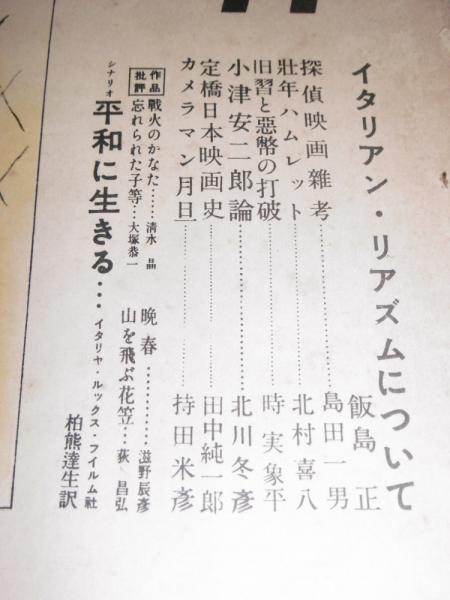 イタリアン・リアズムについて　飯島　正
探偵映画雑考……………島田一男
壮年ハムレット……………北村喜八
旧習と惡幣の打破……………時実象平
小津安二郎論……………北川冬彦
定橋日本映画史……………田中純一郎
カメラマン月旦……………持田米彦
作品批評
戰火のかなた……清水　晶
忘れられた子等…大塚恭一
晩春……………滋野辰彦
山を飛ぶ花笠…荻　昌弘
シナリオ　平和に生きる…イタリヤ・ルックス・フイルム社
柏熊達生訳